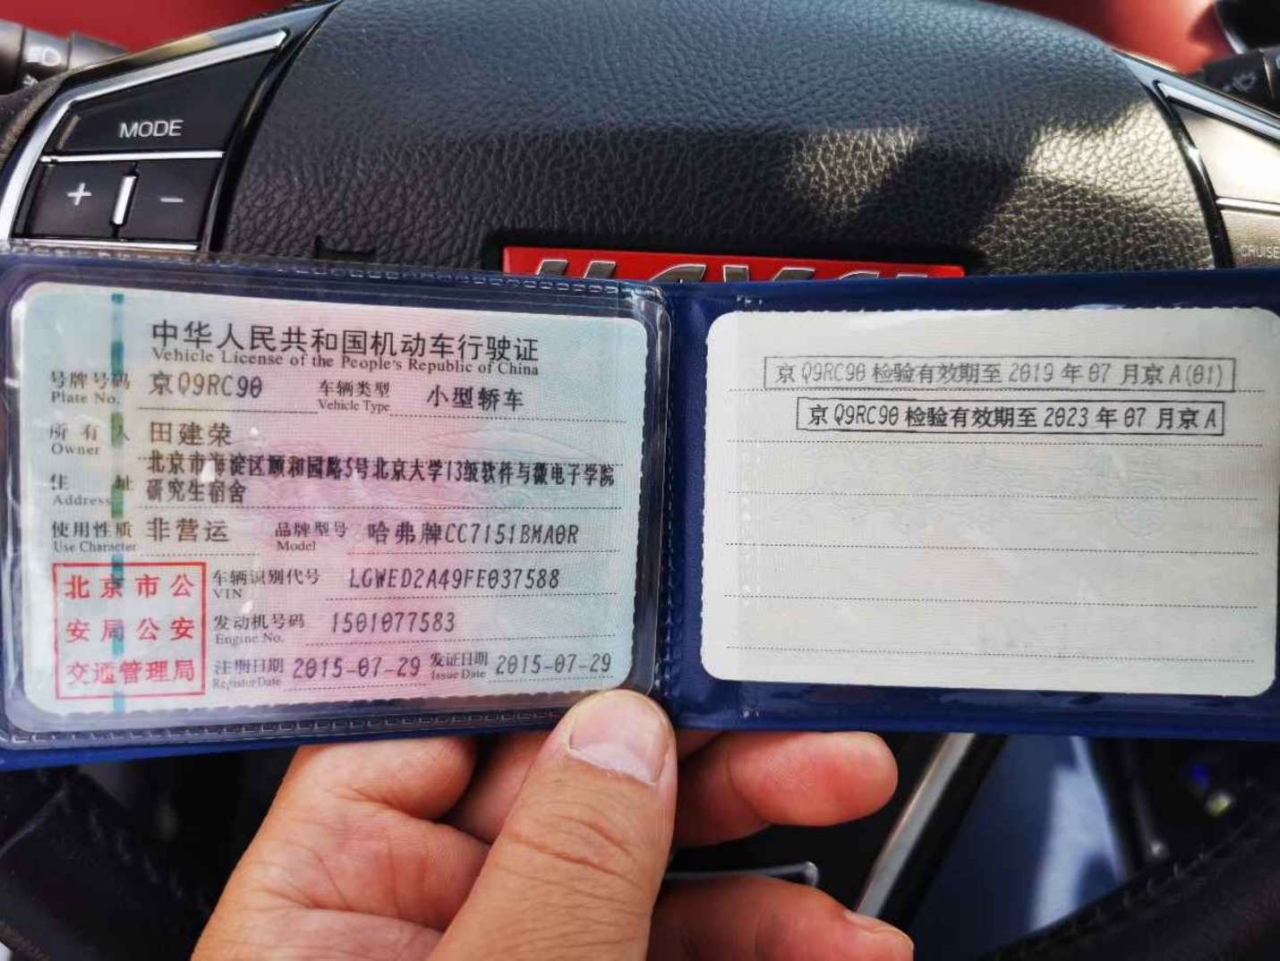 MODE
+ −
CRUISE
HAVAL
中华人民共和国机动车行驶证
Vehicle License of the People's Republic of China
号牌号码 京Q9RC90 车辆类型 小型轿车
Plate No. Vehicle Type
所有人 田建荣
Owner
住址 北京市海淀区颐和园路5号北京大学13级软件与微电子学院
Address 研究生宿舍
使用性质 非营运 品牌型号 哈弗牌CC7151BMA0R
Use Character Model
北京市公
安局公安
交通管理局
车辆识别代号 LGWED2A49FE037588
VIN
发动机号码 1501077583
Engine No.
注册日期 2015-07-29 发证日期 2015-07-29
Register Date Issue Date
京Q9RC90检验有效期至2019年07月京A(01)
京Q9RC90检验有效期至2023年07月京A